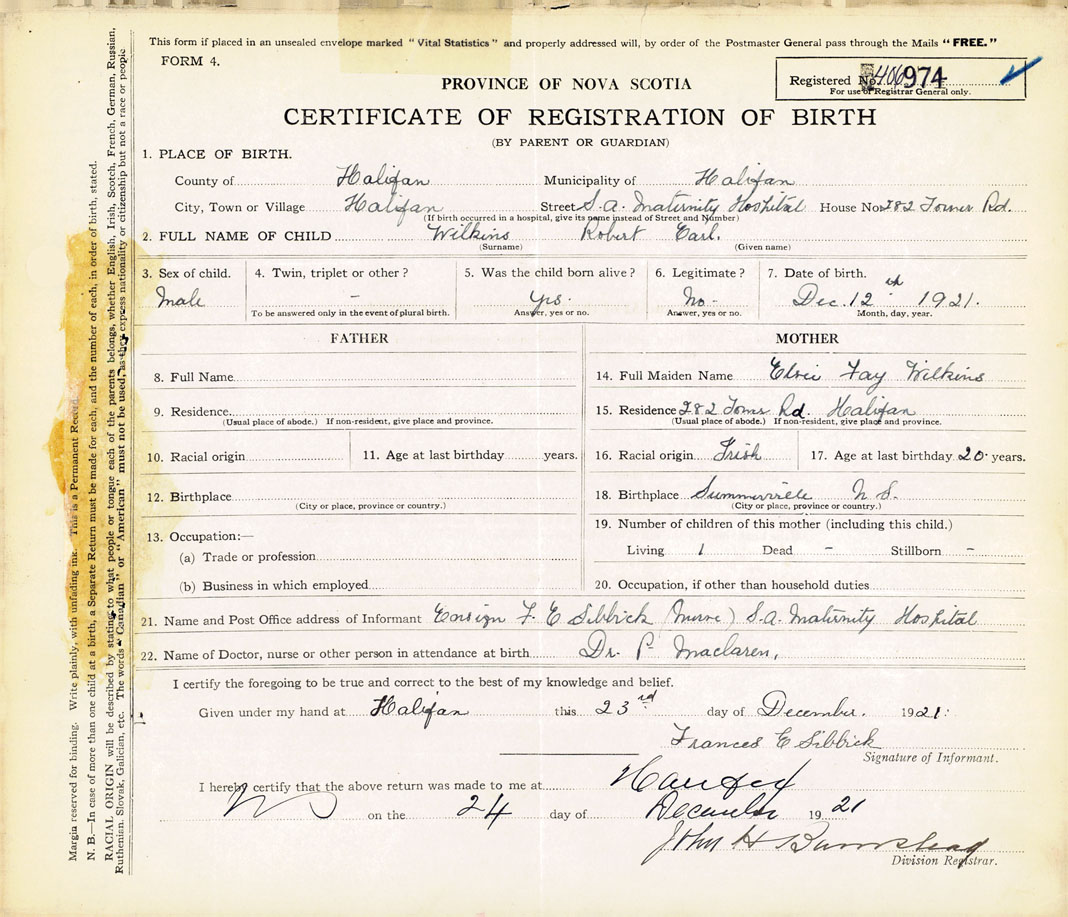 This form if placed in an unsealed envelope marked "Vital Statistics" and properly addressed will, by order of the Postmaster General pass through the Mails "FREE."
FORM 4.
Registered No. 974
For use of Registrar General only.
PROVINCE OF NOVA SCOTIA
CERTIFICATE OF REGISTRATION OF BIRTH
(BY PARENT OR GUARDIAN)
1. PLACE OF BIRTH.
County of Halifax Municipality of Halifax
City, Town or Village Halifax Street S.A. Maternity Hospital House No 282 Tower Rd.
(If birth occurred in a hospital, give its name instead of Street and Number)
2. FULL NAME OF CHILD Wilkins Robert Earl.
(Surname) (Given name)
3. Sex of child. 4. Twin, triplet or other? 5. Was the child born alive? 6. Legitimate? 7. Date of birth.
Male - Yes. No- Dec. 12th 1921.
To be answered only in the event of plural birth. Answer, yes or no. Answer, yes or no. Month, day, year.
FATHER MOTHER
8. Full Name 14. Full Maiden Name Fay Wilkins
9. Residence 15. Residence 282 Rd. Halifax
(Usual place of abode.) If non-resident, give place and province. (Usual place of abode.) If non-resident, give place and province.
10. Racial origin 11. Age at last birthday years. 16. Racial origin Irish 17. Age at last birthday 20 years.
12. Birthplace 18. Birthplace Summerville N S.
(City or place, province or country.) (City or place, province or country.)
13. Occupation:— 19. Number of children of this mother (including this child.)
(a) Trade or profession Living 1 Dead - Stillborn -
(b) Business in which employed 20. Occupation, if other than household duties
21. Name and Post Office address of Informant Ensign F. E Sibbrick (Nurse) S.A. Maternity Hospital
22. Name of Doctor, nurse or other person in attendance at birth Dr. P Maclaren.
I certify the foregoing to be true and correct to the best of my knowledge and belief.
Given under my hand at Halifax this 23rd day of December. 1921.
Frances E Sibbrick
Signature of Informant.
I hereby certify that the above return was made to me at Halifax
NS on the 24 day of December 1921
John H Bumstead
Division Registrar.
Margin reserved for binding. Write plainly, with unfading ink. This is a Permanent Record.
N. B.—In case of more than one child at a birth, a Separate Return must be made for each, and the number of each, in order of birth, stated.
RACIAL ORIGIN will be described by stating to what people or tongue each of the parents belongs, whether English, Irish, Scotch, French, German, Russian,
Ruthenian, Slovak, Galician, etc. The words "Canadian" or "American" must not be used, as they express nationality or citizenship but not a race or people